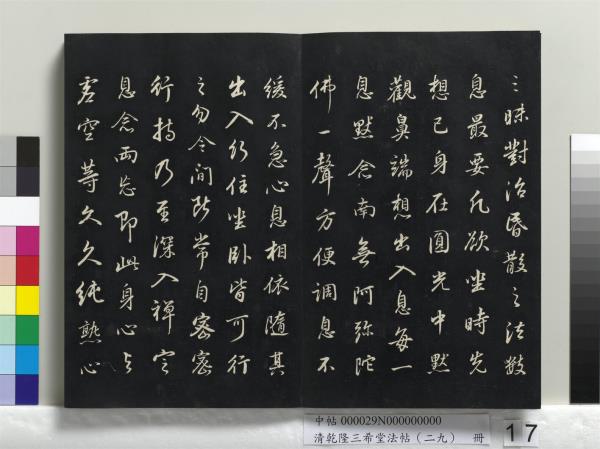 三昧對治昏散之法數
息最要凡欲坐時先
想己身在圓光中默
觀鼻端想出入息每一
息默念南無阿彌陀
佛一聲方便調息不
緩不急心息相依隨其
出入行住坐臥皆可行
之勿令間斷常自密密
行持乃至深入禪定
息念兩忘即此身心與
虛空等久久純熟心
中帖 000029N000000000
清乾隆三希堂法帖(二九) 冊
17